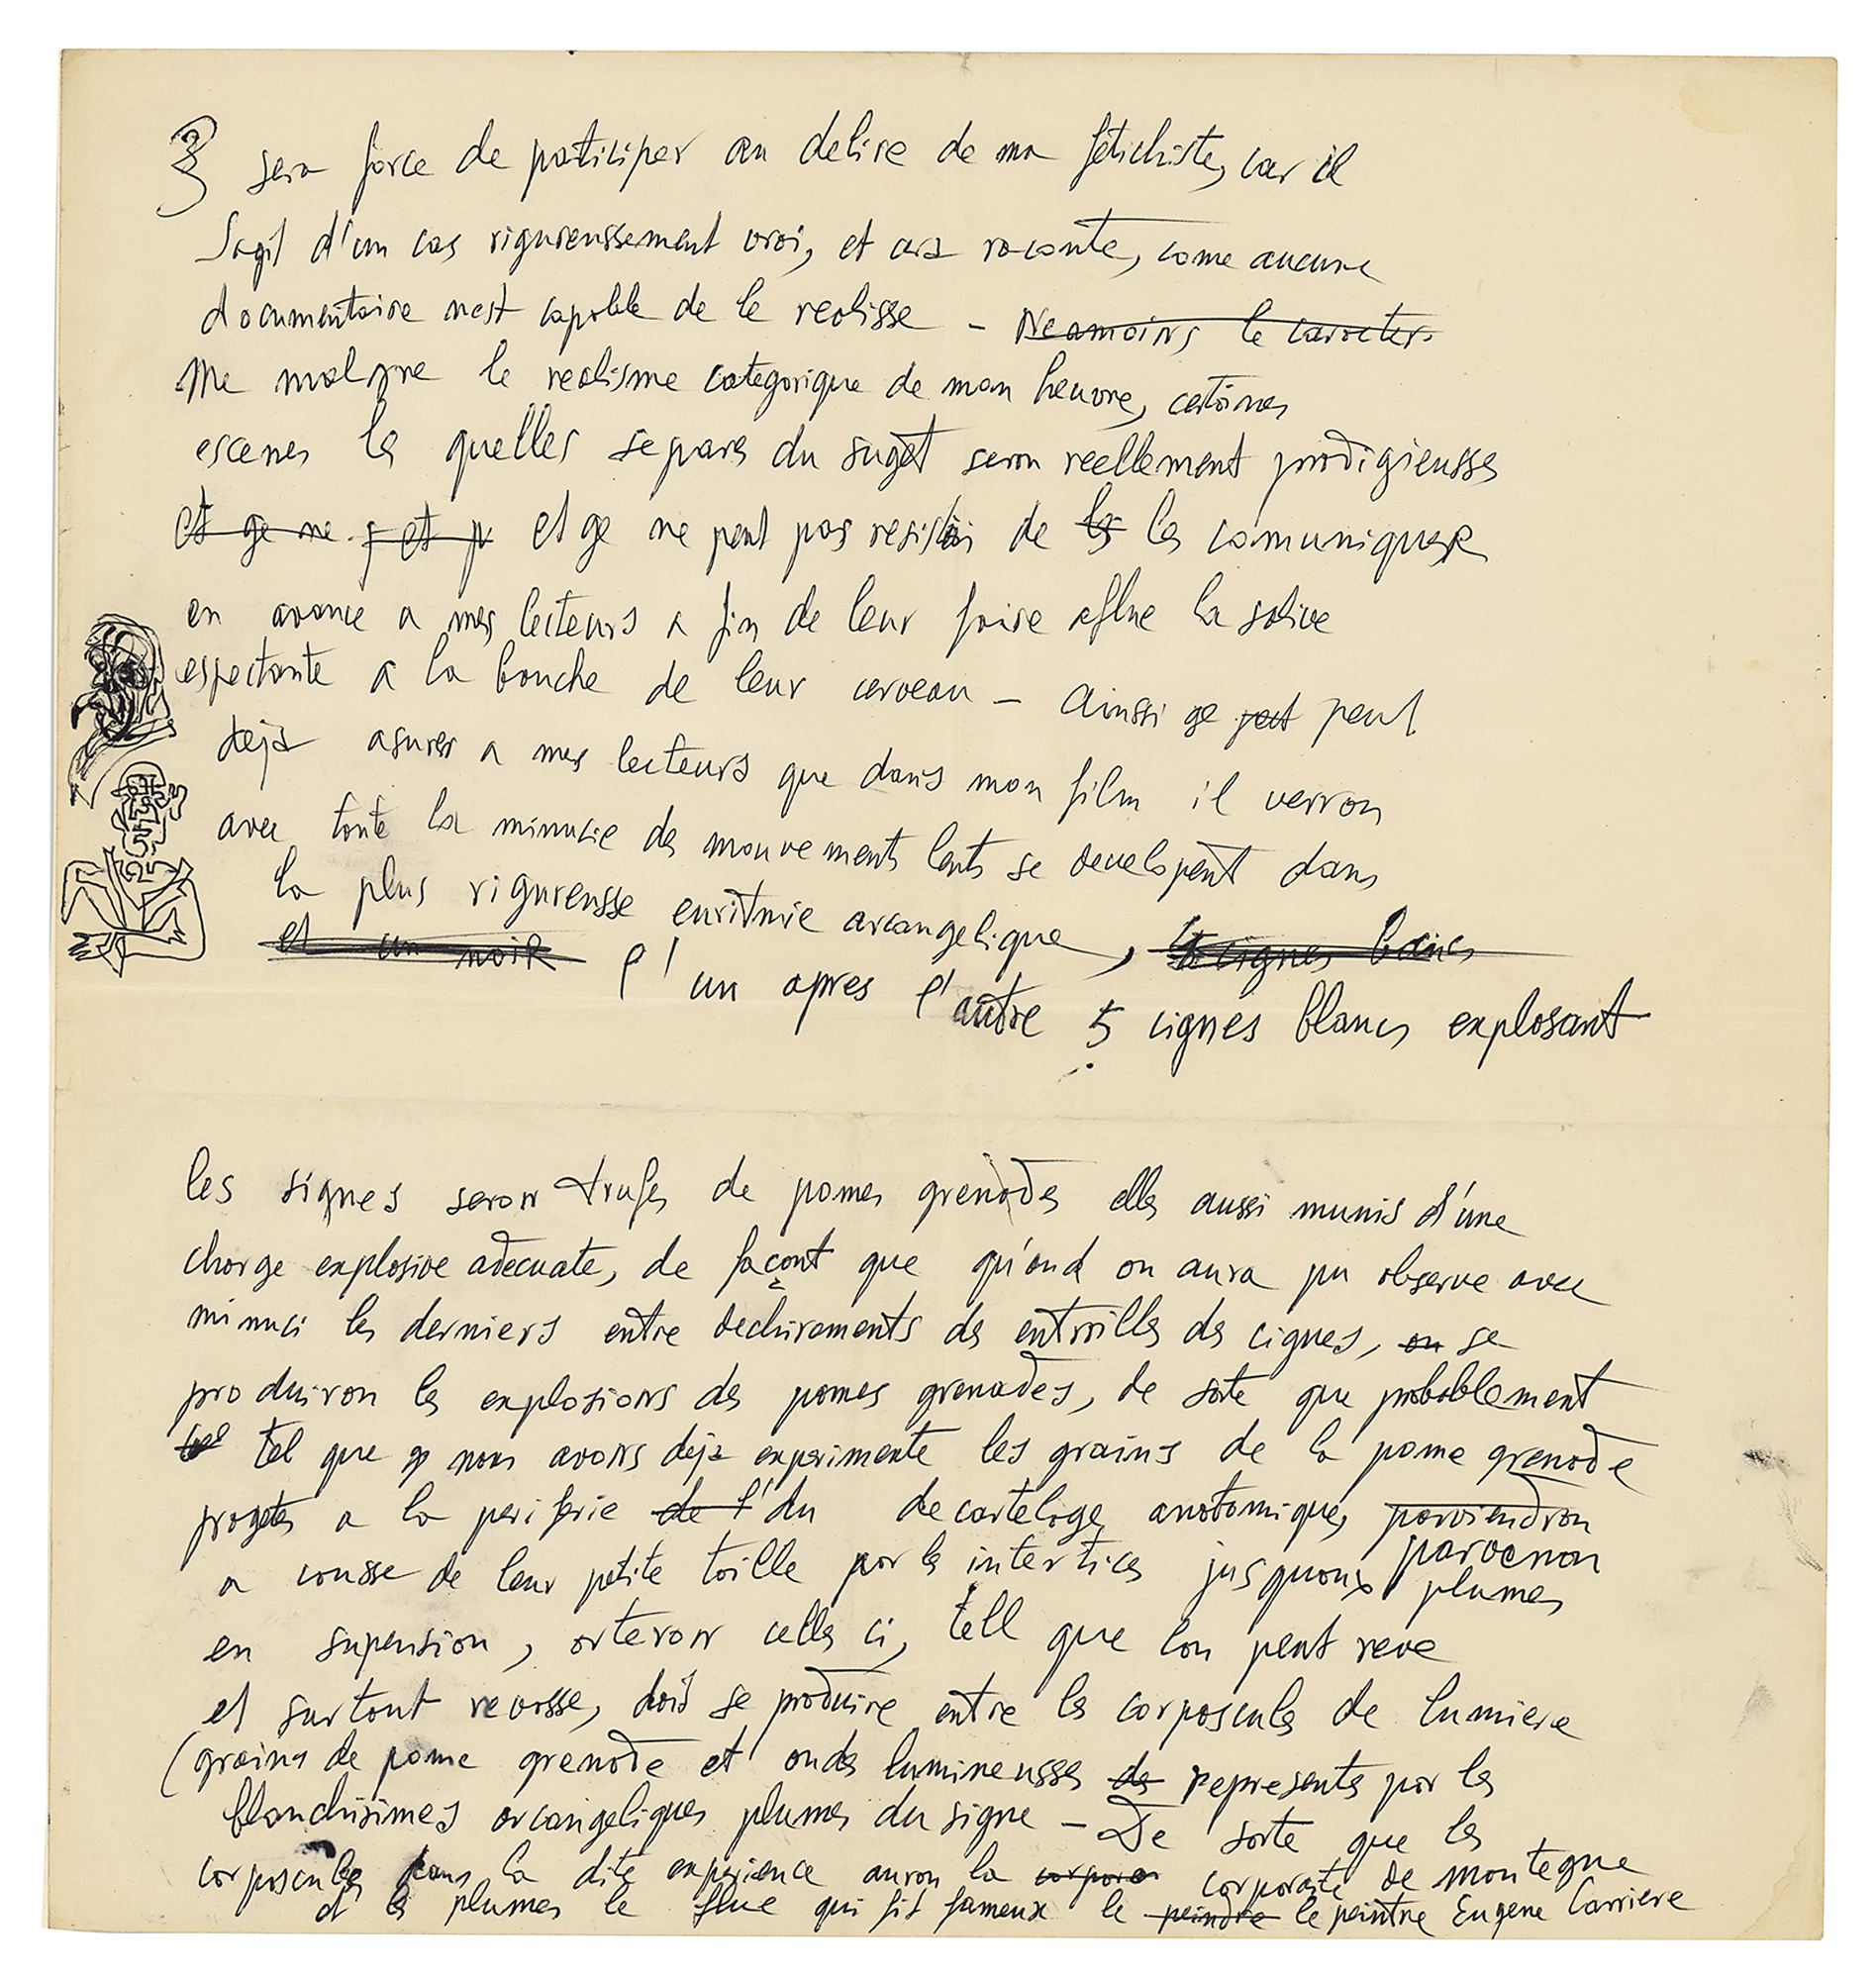 3 sera force de patisiper au delire de ma fetichiste, car il
Sagit d'un cas rigureussement vrai, et cera raconte, come aucune
documentaire nest capable de le realisse – Neamoins le caracter
Me malgre le realisme categorique de mon heuvre, certaines
escenes les quelles separes du suget seron reellement prodigieusses
et ge ne et p et ge ne peut pas resister de les les comuniquer
en avance a mes lecteurs a fin de leur faire aflue la salive
espectante a la bouche de leur cerveau – Ainssi ge peut
deja asurer a mes lecteurs que dans mon film il verron
avec toute la minucie des mouvements lents se developent dans
la plus rigureusse euritmie arcangelique, cignes blancs
et un noir l'un apres l'autre 5 cignes blancs explosant
les signes seron trufes de pomes grenades elles aussi munis d'une
charge explosive adecuate, de façont que qu'and on aura pu observe avec
minuci les derniers entre dechiraments des entrailles des cignes, on se
produiron les explosions des pomes grenades, de sorte que probablement
tel que nous avons deja experimente les grains de la pome grenade
progetes a la periferie de l' du decartelage anatomique, parviendron
parvenan
a causse de leur petite taille par les intertices jusquaux plumes
en supension, orteron celles ci, tell que lon peut reve
et surtout revasse, dois se produire entre les corposcules de lumiere
(grains de pome grenade et ondes lumineusses des represents par les
blanchisimes arcangeliques plumes du signe – De sorte que les
corposcules dans la dite experience auron la corpora corporaite de montegne
et les plumes le flue qui fit fameux le peindre le peintre Eugene Carriere